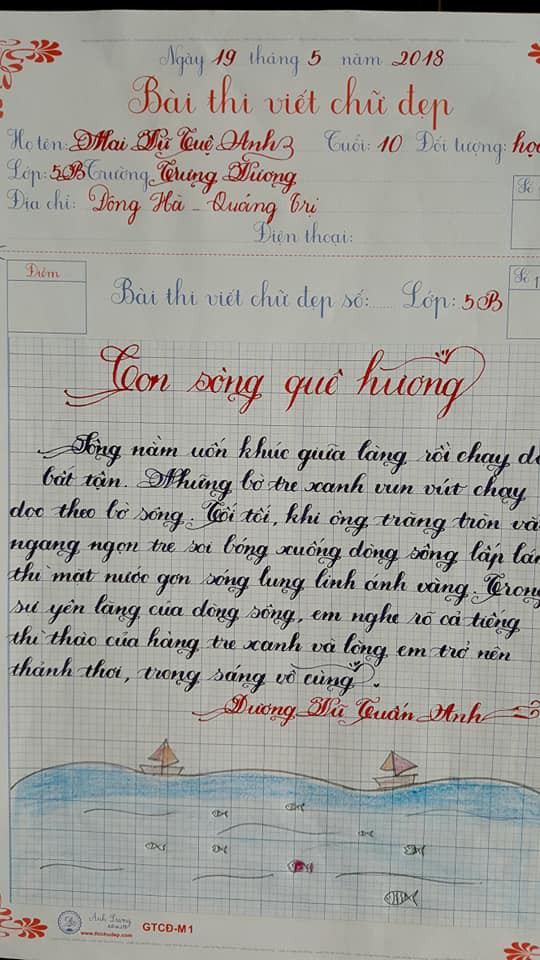 Ngày 19 tháng 5 năm 2018
Bài thi viết chữ đẹp
Họ tên: Mai Vũ Tuệ Anh Tuổi: 10 Đối tượng: học
Lớp: 5B Trường Trưng Vương
Địa chỉ: Đông Hà - Quảng Trị
Điện thoại:
Điểm
Bài thi viết chữ đẹp số: Lớp: 5B
Số
Con sông quê hương
Sông nằm uốn khúc giữa làng rồi chạy dà
bất tận. Những bờ tre xanh vun vút chạy
dọc theo bờ sông. Tối tối, khi ông trăng tròn vắ
ngang ngọn tre soi bóng xuống dòng sông lấp lán
thì mặt nước gợn sóng lung linh ánh vàng. Trong
sự yên lặng của dòng sông, em nghe rõ cả tiếng
thì thào của hàng tre xanh và lòng em trở nên
thảnh thơi, trong sáng vô cùng.
Dương Vũ Tuấn Anh
Ánh Dương
GTCĐ-M1